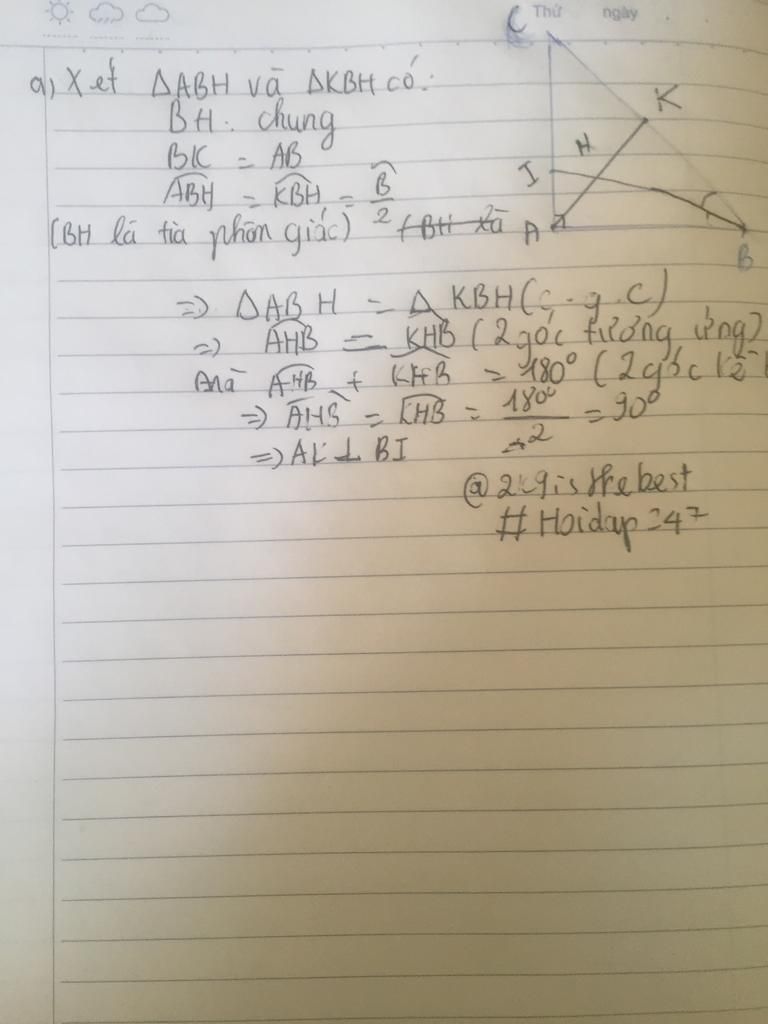 Thứ ngày
C
K
H
I
A
B
a, Xét ΔABH và ΔKBH có:
BH: chung
BK = AB
\widehat{ABH} = \widehat{KBH} = \frac{\widehat{B}}{2}
(BH là tia phân giác)
⇒ ΔABH = ΔKBH (c.g.c)
⇒ \widehat{AHB} = \widehat{KHB} (2 góc tương ứng)
mà \widehat{AHB} + \widehat{KHB} = 180° (2 góc kề
⇒ \widehat{AHB} = \widehat{KHB} = \frac{180°}{2} = 90°
⇒ AK ⊥ BI
@2k9isthebest
#Hoidap247